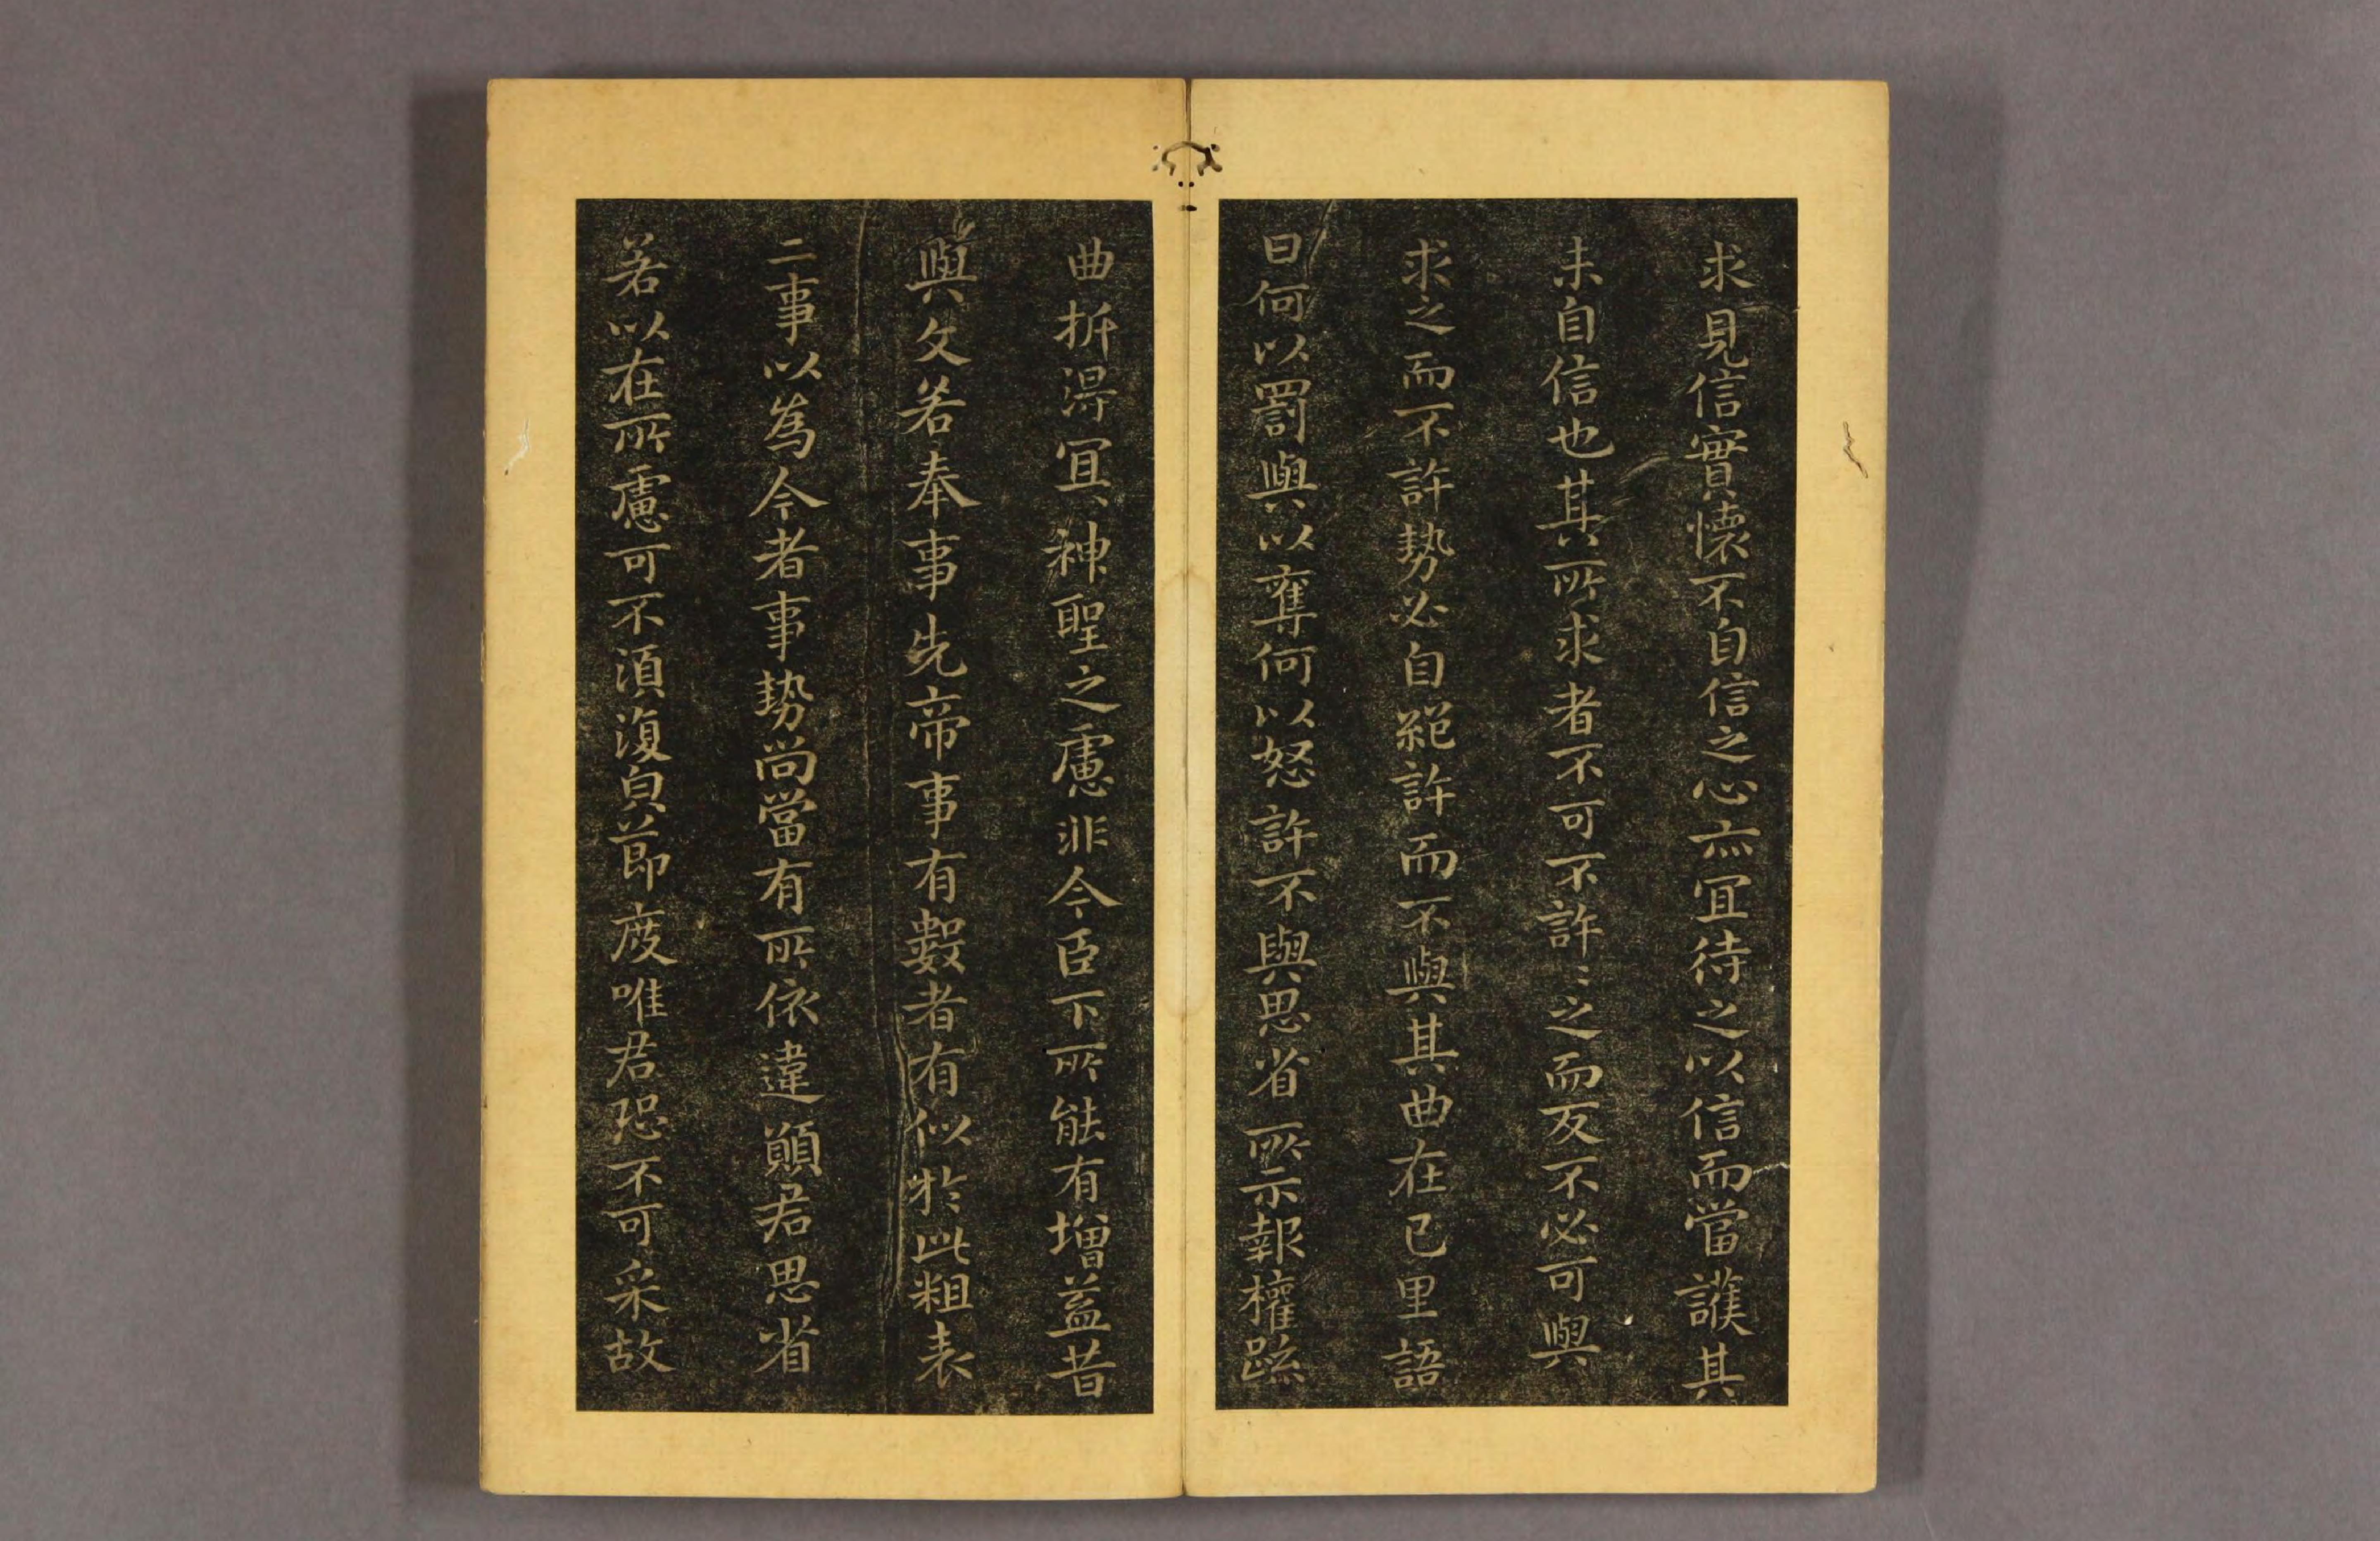 求見信實懷不自信之心亦宜待之以信而當護其
未自信也其所求者不可不許〻之而反不必可與
求之而不許勢必自絕許而不與其曲在己里語
曰何以罰與以奪何以怒許不與思省所示報權疏
曲折得宜神聖之慮非今臣下所能有增益昔
與文若奉事先帝事有數者有似於此粗表
二事以為今者事勢尚當有所依違願君思省
若以在所慮可不須復貟節度唯君恐不可采故